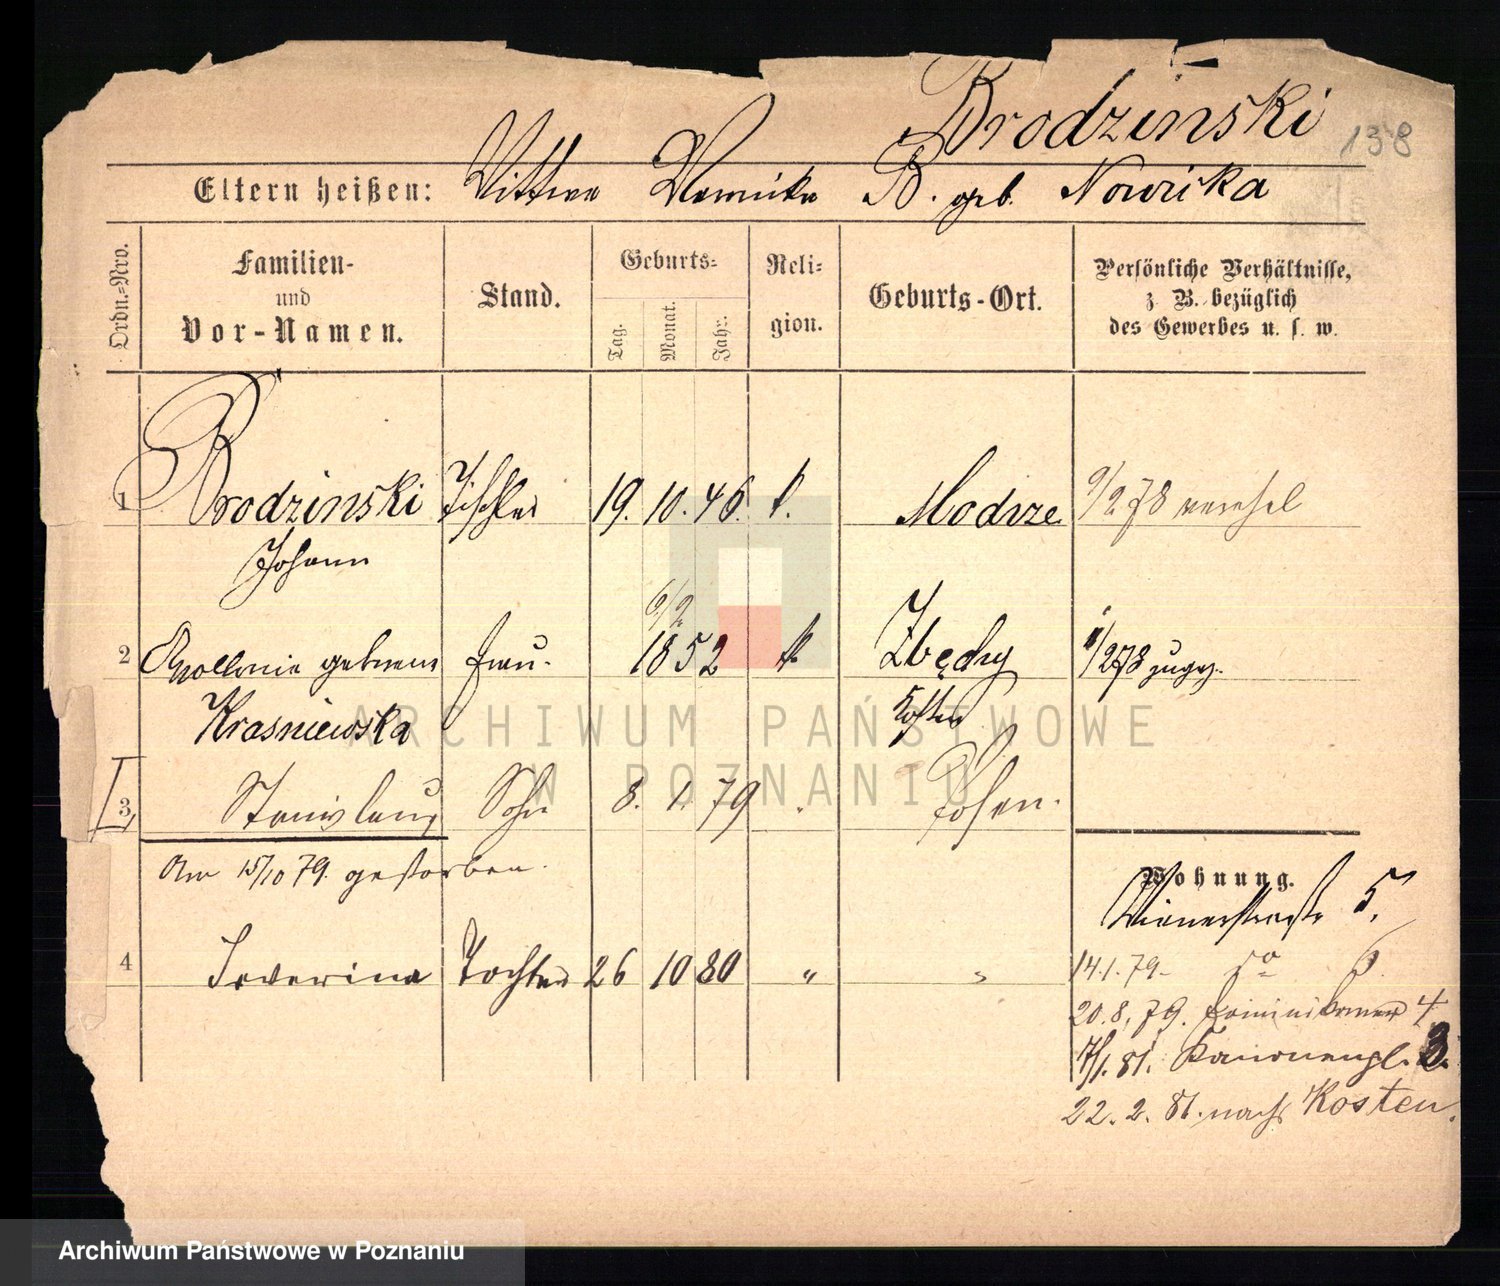 Brodzinski
138
Eltern heißen: Wittwe B. geb. Nowicka
Ordn.-Nro.
Familien-
und
Vor-Namen.
Stand.
Geburts-
Tag.
Monat.
Jahr.
Reli-
gion.
Geburts-Ort.
Persönliche Verhältnisse,
z. B. bezüglich
des Gewerbes u. s. w.
1 Brodzinski Tischler 19. 10. 46. k. Modrze 9/2 78
Johann
6/2
2 Apollonia geborene Frau. 1852 k. Zbęchy 1/2 78 zugez.
Krasniewska Kosten
3 Stanislaus Sohn 8. 1. 79 Posen.
Am 15/10 79. gestorben.
Wohnung.
Wienerstraße 5.
4 Severina Tochter 26 10 80 " "
14.1.79. do
20.8.79. Dominikaner 4
7/1. 81. 3.
22. 2. 81. nach Kosten.
ARCHIWUM PAŃSTWOWE
W POZNANIU
Archiwum Państwowe w Poznaniu